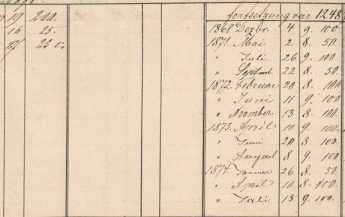 17 200.
16 25.
27
fortsetzung von 1248
1861 Dezbr. 4 9. 100
1871. Mai 2 8. 50.
" Juli 26 9. 100.
" 22 8. 50.
1872. Februar 28 8. 100
" Juni 11 9. 100
" November 13 8. 100.
1873. April 10 9. 100.
" Juni 20 8. 100
" August 8 9. 100.
1874. Januar 26 8. 50
" April 10 8. 100.
" Juli 13 9. 100.